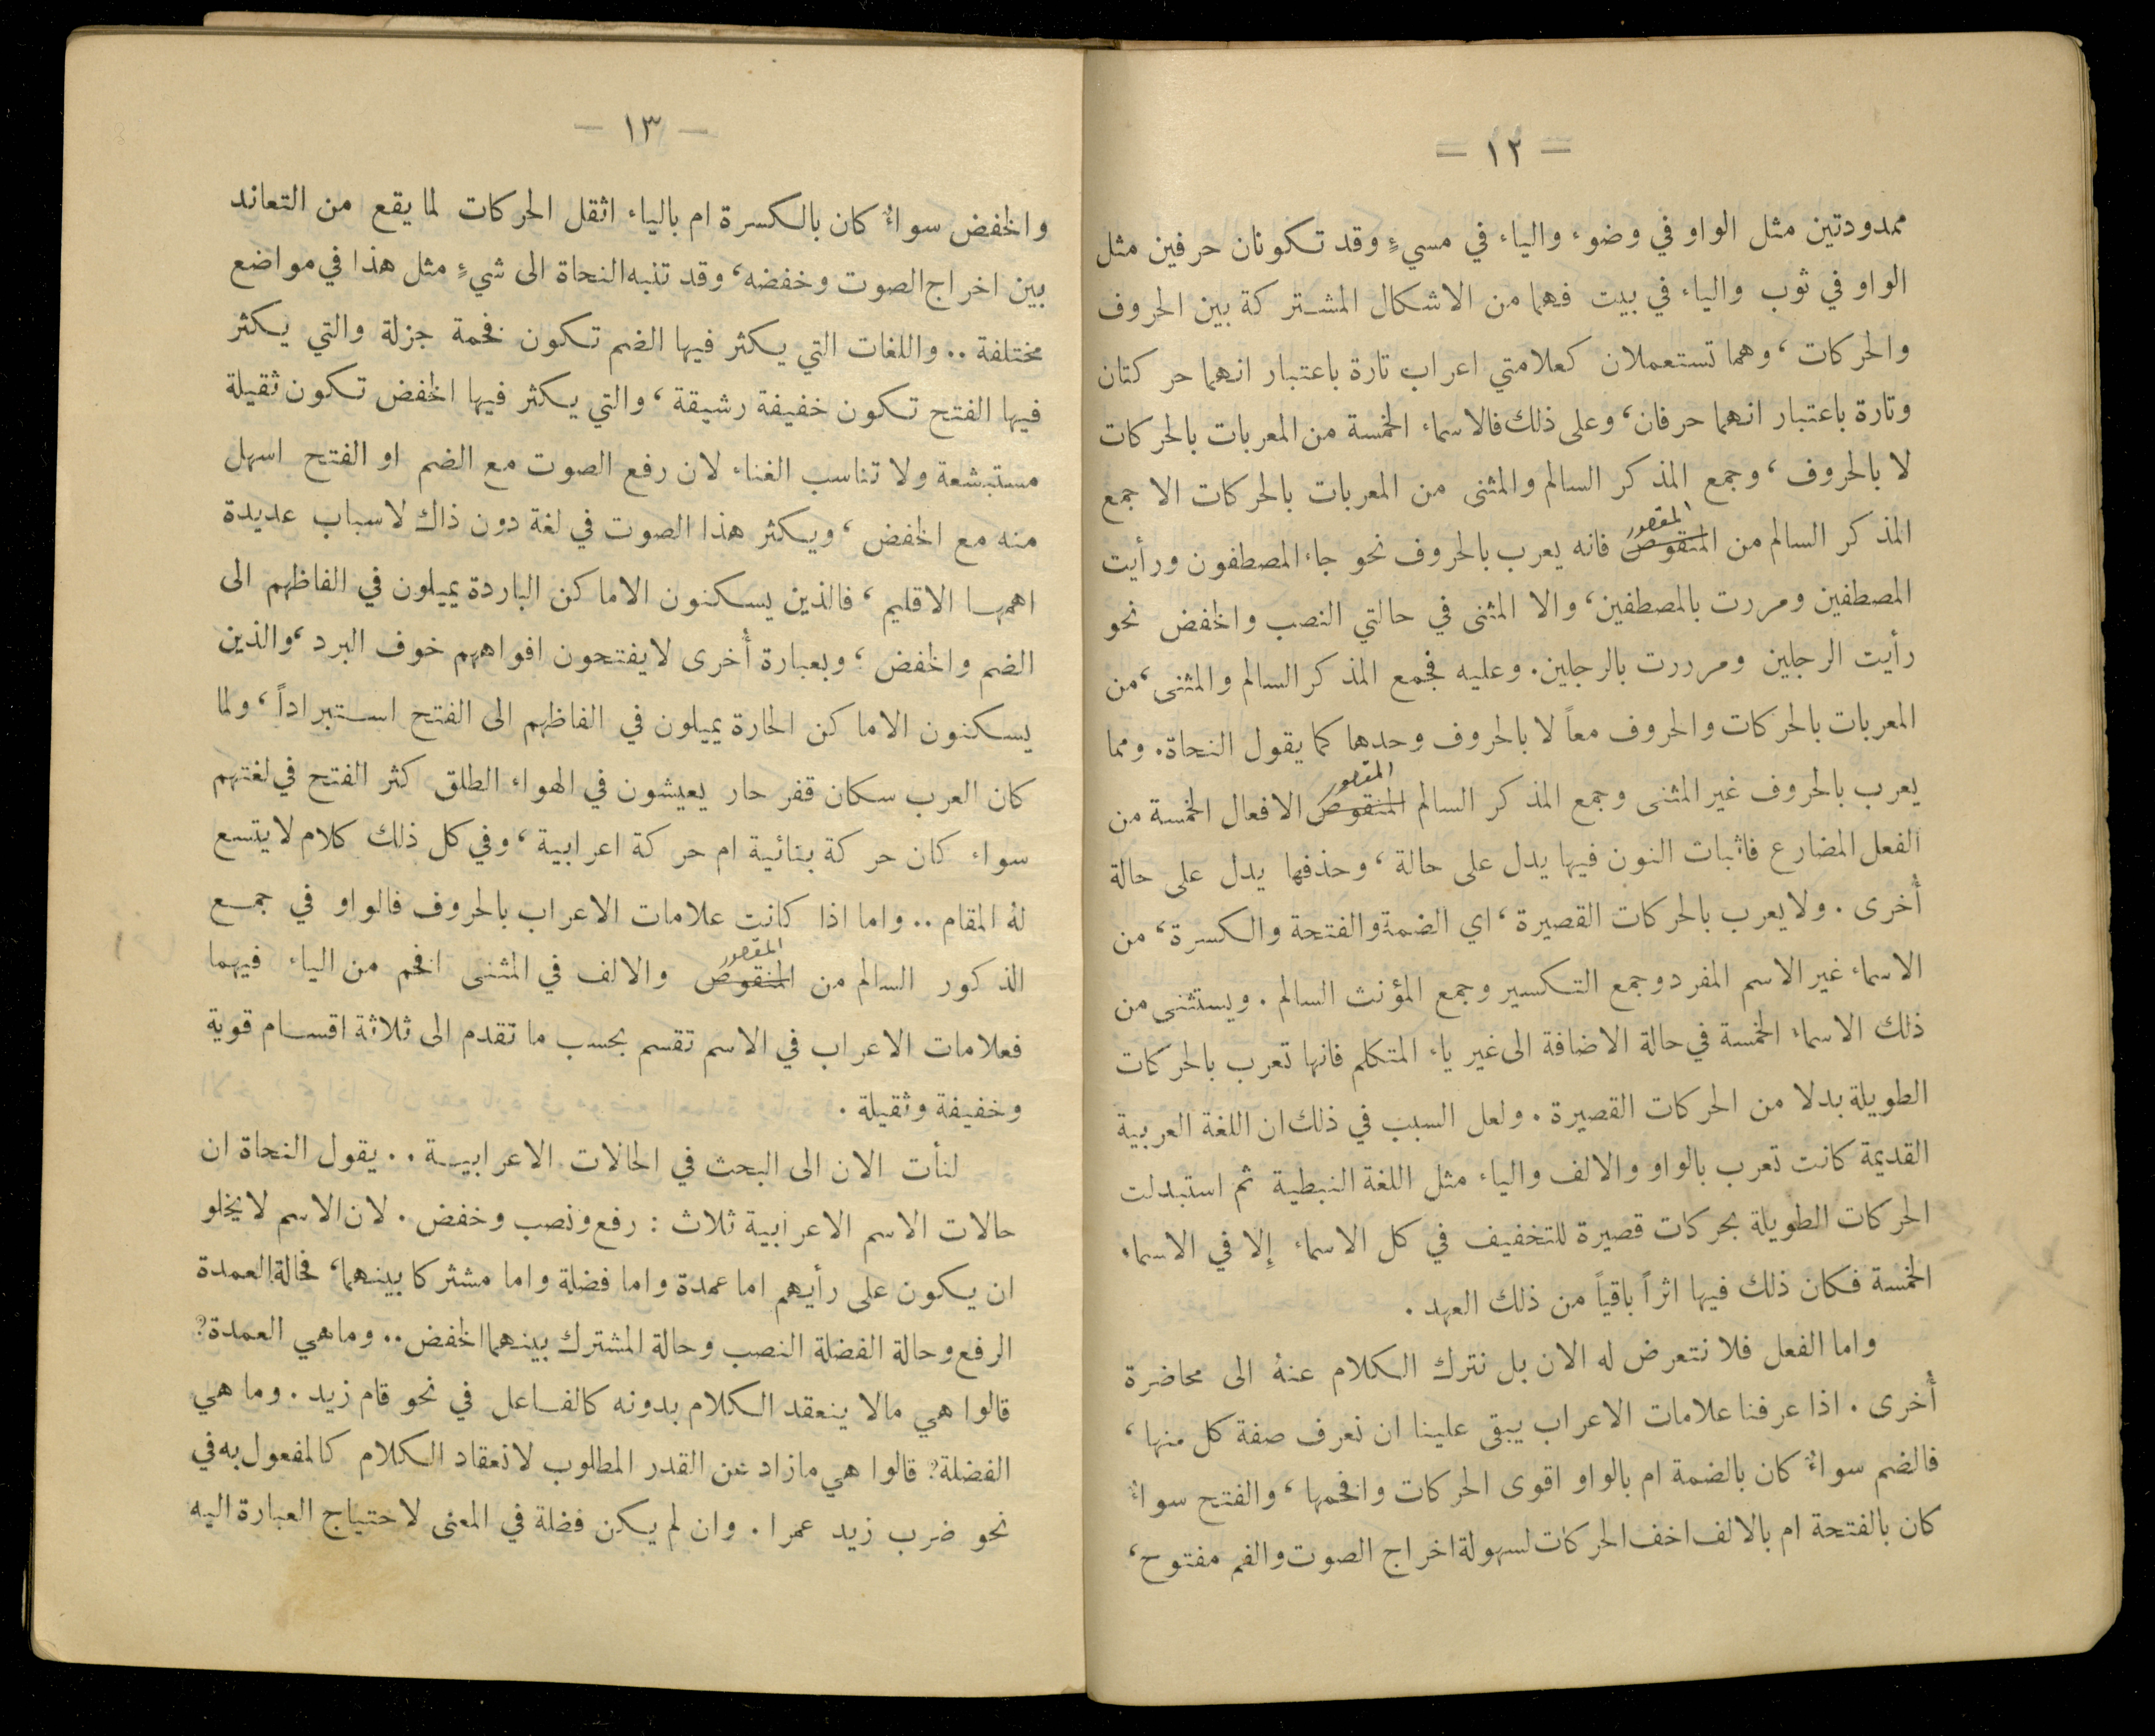 = ١٢ =
ممدودتين مثل الواو في وضوء والياء في مسيءٍ وقد تكونان حرفين مثل
الواو في ثوب والياء في بيت فهما من الاشكال المشتركة بين الحروف
والحركات، وهما تستعملان كعلامتي اعراب تارة باعتبار انهما حركتان
وتارة باعتبار انهما حرفان، وعلى ذلك فالاسماء الخمسة من المعربات بالحركات
لا بالحروف، وجمع المذكر السالم والمثنى من المعربات بالحركات الا جمع
المقصور
المذكر السالم من المنقوص فانه يعرب بالحروف نحو جاء المصطفون ورأيت
المصطفين ومررت بالمصطفين، والا المثنى في حالتي النصب والخفض نحو
رأيت الرجلين ومرررت بالرجلين. وعليه فجمع المذكر السالم والمثنى، من
المعربات بالحركات والحروف معاً لا بالحروف وحدها كما يقول النحاة. ومما
المقصور
يعرب بالحروف غير المثنى وجمع المذكر السالم المنقوص الافعال الخمسة من
الفعل المضارع فاثبات النون فيها يدل على حالة، وحذفها يدل على حالة
أخرى. ولا يعرب بالحركات القصيرة، اي الضمة والفتحة والكسرة، من
الاسماء غير الاسم المفرد وجمع التكسير وجمع المؤنث السالم. ويستثنى من
ذلك الاسماء الخمسة في حالة الاضافة الى غير ياء المتكلم فانها تعرب بالحركات
الطويلة بدلا من الحركات القصيرة. ولعل السبب في ذلك ان اللغة العربية
القديمة كانت تعرب بالواو والالف والياء مثل اللغة النبطية ثم استبدلت
الحركات الطويلة بحركات قصيرة للتخفيف في كل الاسماء إلا في الاسماء
الخمسة فكان ذلك فيها اثراً باقياً من ذلك العهد.
واما الفعل فلا نتعرض له الان بل نترك الكلام عنهُ الى محاضرة
أخرى. اذا عرفنا علامات الاعراب يبقى علينا ان نعرف صفة كل منها،
فالضم سواءٌ كان بالضمة ام بالواو اقوى الحركات وافخمها، والفتح سواءٌ
كان بالفتحة ام بالالف اخف الحركات لسهولة اخراج الصوت والفم مفتوح،
— ١٣ —
والخفض سواءٌ كان بالكسرة ام بالياء اثقل الحركات لما يقع من التعاند
بين اخراج الصوت وخفضه، وقد تنبه النحاة الى شيءٍ مثل هذا في مواضع
مختلفة .. واللغات التي يكثر فيها الضم تكون فخمة جزلة والتي يكثر
فيها الفتح تكون خفيفة رشيقة، والتي يكثر فيها الخفض تكون ثقيلة
مستبشعة ولا تناسب الغناء لان رفع الصوت مع الضم او الفتح اسهل
منه مع الخفض، ويكثر هذا الصوت في لغة دون ذاك لاسباب عديدة
اهمها الاقليم، فالذين يسكنون الاماكن الباردة يميلون في الفاظهم الى
الضم والخفض، وبعبارة أخرى لا يفتحون افواههم خوف البرد، والذين
يسكنون الاماكن الحارة يميلون في الفاظهم الى الفتح استبراداً، ولما
كان العرب سكان قفر حار يعيشون في الهواء الطلق كثر الفتح في لغتهم
سواء كان حركة بنائية ام حركة اعرابية، وفي كل ذلك كلام لا يتسع
لهُ المقام .. واما اذا كانت علامات الاعراب بالحروف فالواو في جمع
المقصور
الذكور السالم من المنقوص والالف في المثنى افخم من الياء فيهما
فعلامات الاعراب في الاسم تقسم بحسب ما تقدم الى ثلاثة اقسام قوية
وخفيفة وثقيلة.
لنأت الان الى البحث في الحالات الاعرابية .. يقول النحاة ان
حالات الاسم الاعرابية ثلاث : رفع ونصب وخفض. لان الاسم لا يخلو
ان يكون على رأيهم اما عمدة واما فضلة واما مشتركا بينهما، فحالة العمدة
الرفع وحالة الفضلة النصب وحالة المشترك بينهما الخفض .. وما هي العمدة؟
قالوا هي مالا ينعقد الكلام بدونه كالفاعل في نحو قام زيد. وما هي
الفضلة؟ قالوا هي مازاد عن القدر المطلوب لانعقاد الكلام كالمفعول به في
نحو ضرب زيد عمرا. وان لم يكن فضلة في المعنى لاحتياج العبارة اليه